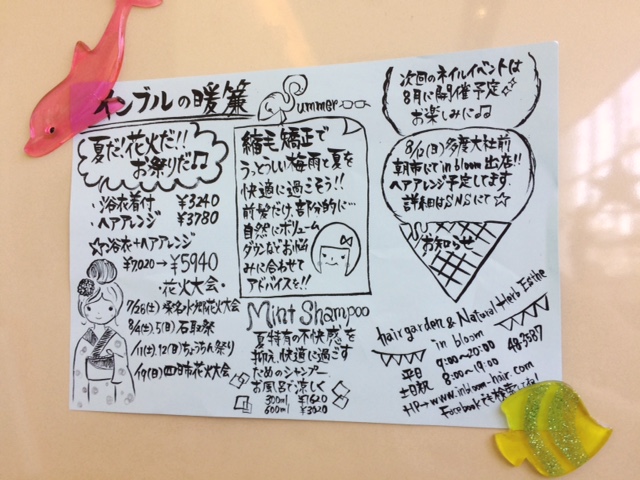 インブルの暖簾
夏だ!花火だ!!
お祭りだ♫
・浴衣着付 ¥3240
・ヘアアレンジ ¥3780
☆浴衣+ヘアアレンジ
¥7020→¥5940
・花火大会・
7/28(土)桑名水郷花火大会
8/4(土)5(日)石取祭
11(土).12(日)ちょうちん祭り
(日)四日市花火大会
Summer
縮毛矯正で
うっとうしい梅雨と夏を
快適に過ごそう!!
前髪だけ、部分的に…
自然にボリューム
ダウンなどお悩
みに合わせて
アドバイスを!!
Mint Shampoo
夏特有の不快感を
抑え、快適に過ごす
ためのシャンプー
お風呂で涼しく
300ml ¥1620
600ml
次回のネイルイベントは
8月に開催予定☆
お楽しみに♫
8/12(日)多度大社前
朝市にてin bloom出店!!
ヘアアレンジ予定してます
詳細はSNSにて☆
お知らせ
hairgarden & Natural Herb Esthe
in bloom
平日 9:00~20:00
土日祝 8:00~19:00
48-3587
HP→www.inbloom-hair.com
Facebookも検索してね!